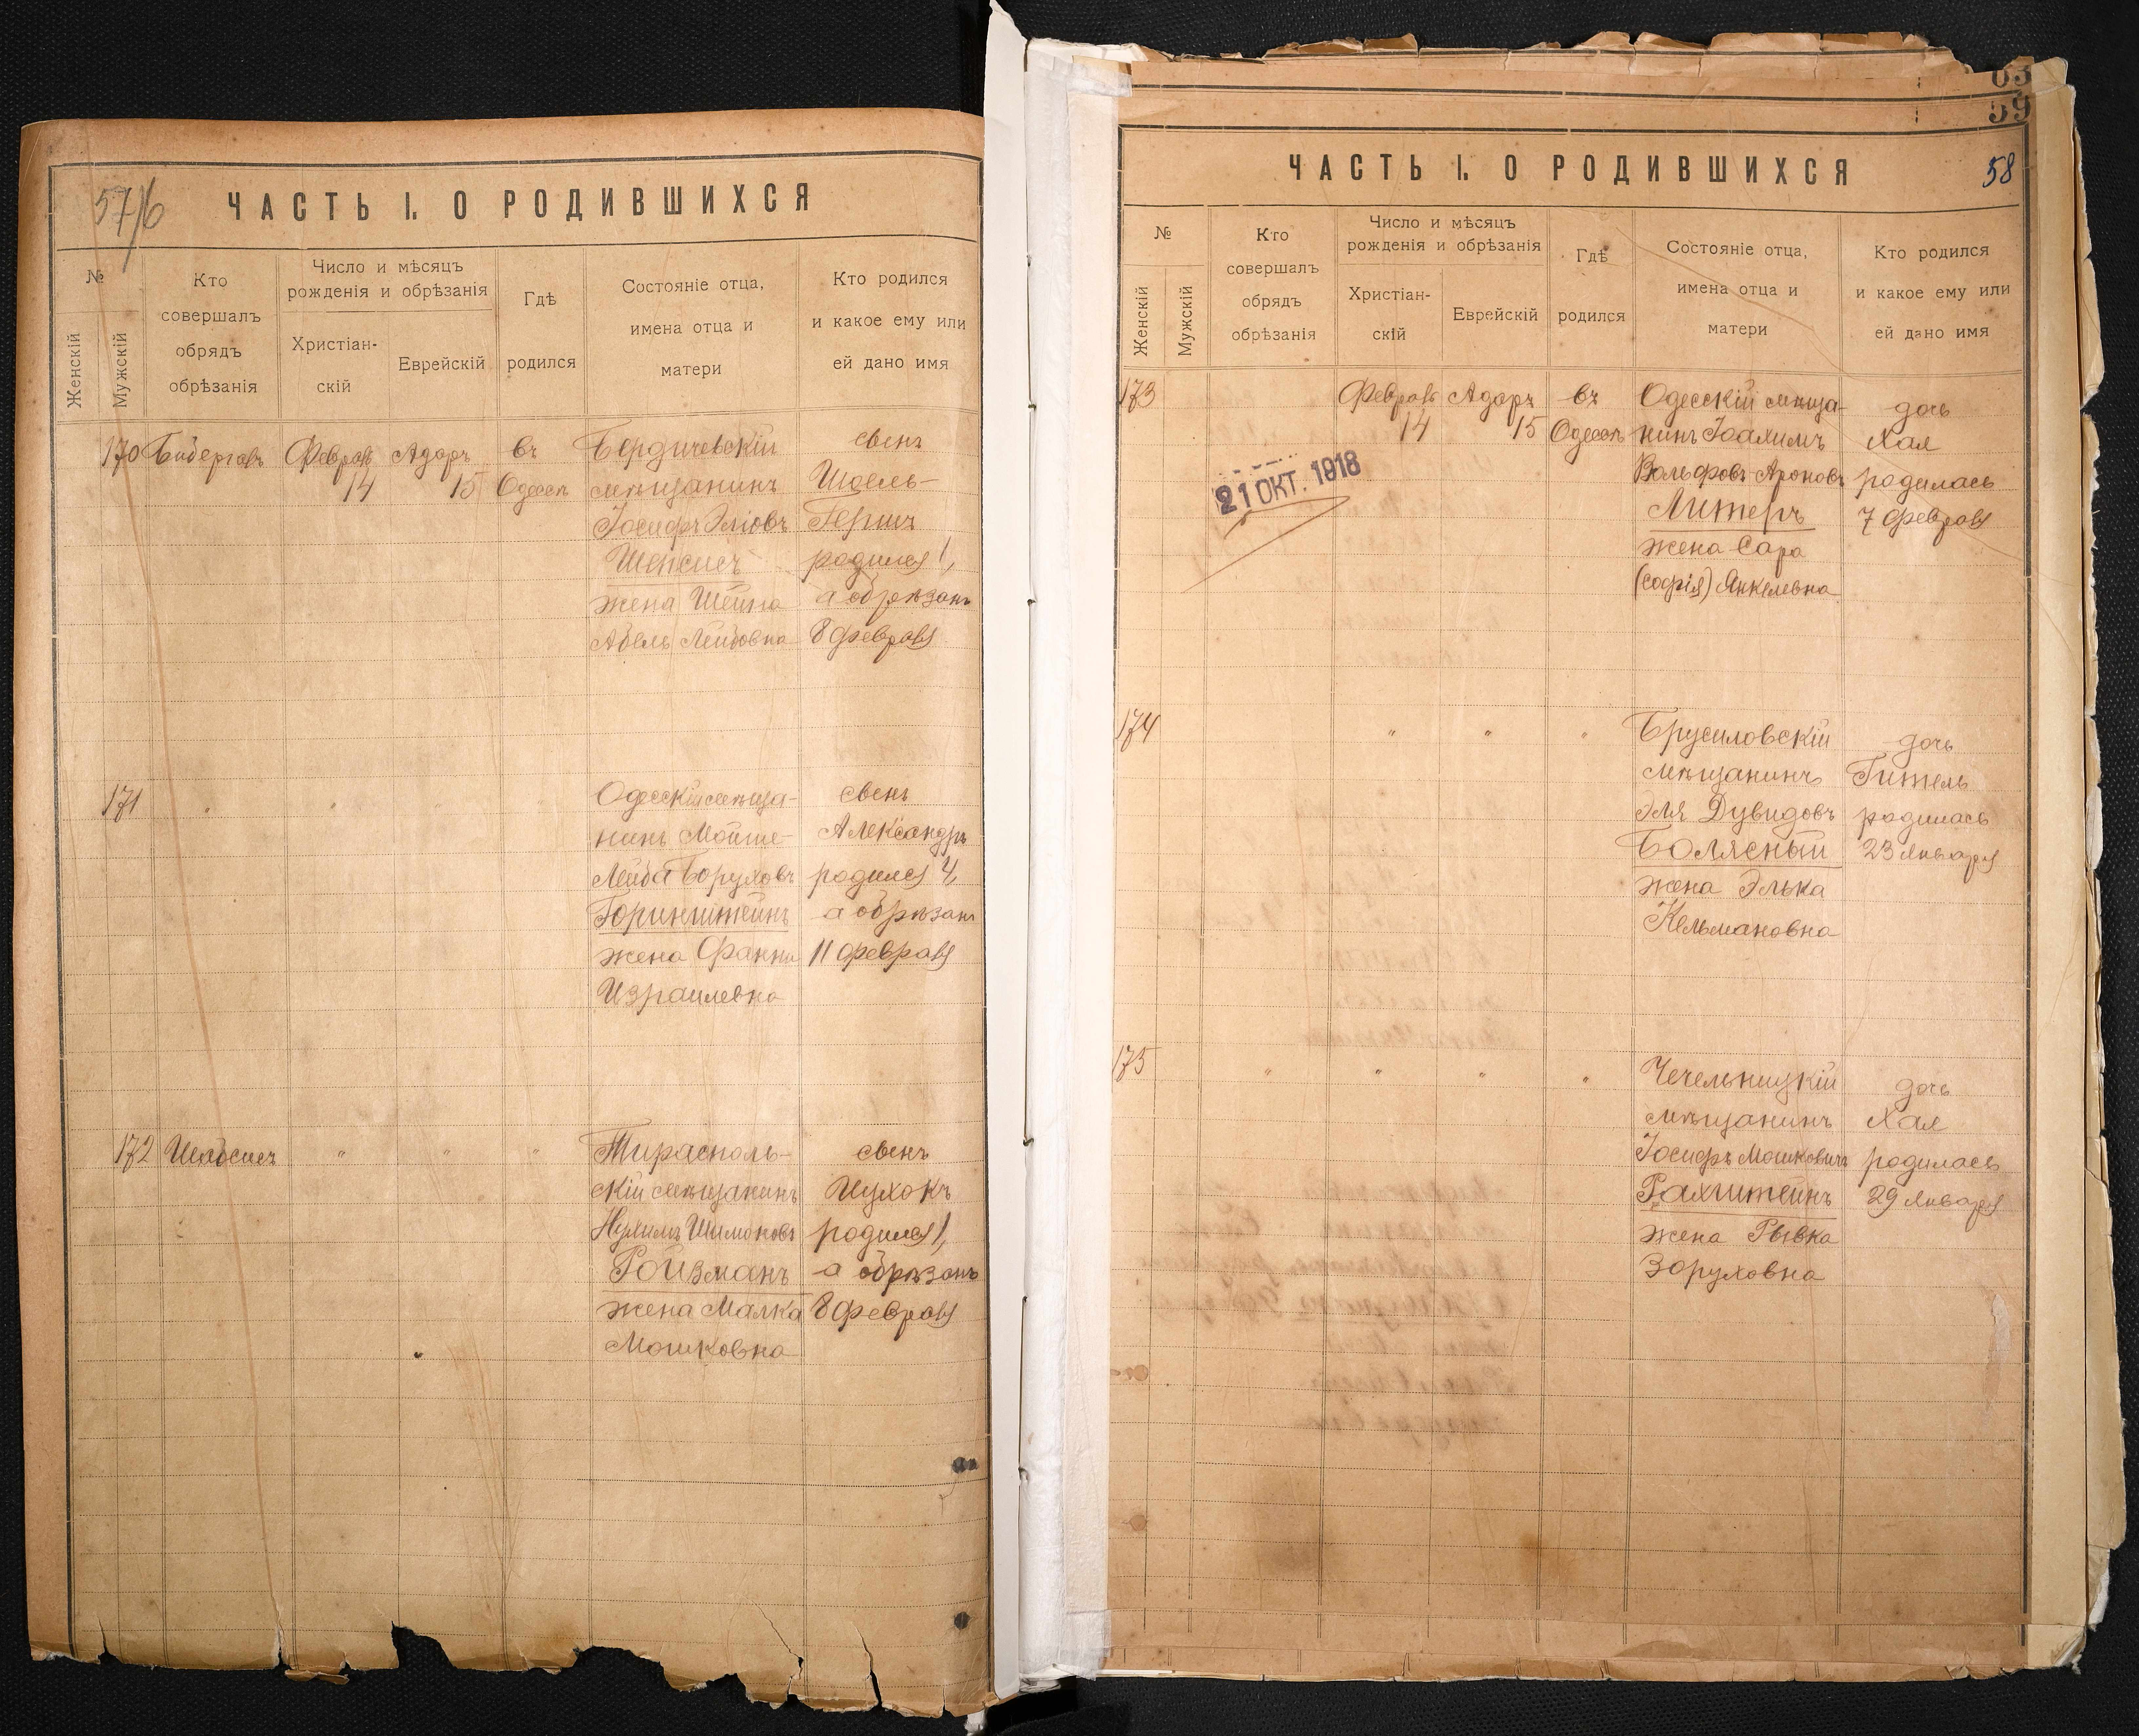 57/б
ЧАСТЬ I. О РОДИВШИХСЯ
№
Женскій
Мужскій
Кто
совершалъ
обрядъ
обрѣзанія
Число и мѣсяцъ
рожденія и обрѣзанія
Христіан-
скій
Еврейскій
Гдѣ
родился
Состояніе отца,
имена отца и
матери
Кто родился
и какое ему или
ей дано имя
170
Февраля
14
Адаръ
15
въ
Одессѣ
Бердичевскій
мѣщанинъ
Іосифъ Эліовъ
Шепсисъ
жена Шейна
Абель Лейбовна
сынъ
Шоель-
Гершъ
родился 1,
а обрѣзанъ
8 февраля
171
" " " "
Одесскій мѣща-
нинъ Мойше-
Лейба Боруховъ
Горинштейнъ
жена Фанни
Израилевна
сынъ
Александръ
родился 4,
а обрѣзанъ
11 февраля
172
" " "
Тирасполь-
скій мѣщанинъ
Нухимъ Шимоновъ
Ройзманъ
жена Малка
Мошковна
сынъ
Ицхокъ
родился 1,
а обрѣзанъ
8 февраля
63
59
58
ЧАСТЬ I. О РОДИВШИХСЯ
№
Женскій
Мужскій
Кто
совершалъ
обрядъ
обрѣзанія
Число и мѣсяцъ
рожденія и обрѣзанія
Христіан-
скій
Еврейскій
Гдѣ
родился
Состояніе отца,
имена отца и
матери
Кто родился
и какое ему или
ей дано имя
173
21 ОКТ. 1918
Февраля
14
Адаръ
15
въ
Одессѣ
Одесскій мѣща-
нинъ Іоахимъ
Вольфовъ-Ароновъ
Литеръ
жена Сара
(Софія) Янкелевна
дочь
Хая
родилась
7 февраля
174
" " "
Брусиловскій
мѣщанинъ
Эля Дувидовъ
Болясный
жена Элька
Кельмановна
дочь
Гитель
родилась
23 января
175
" " " "
Чечельницкій
мѣщанинъ
Іосифъ Мошковичъ
Рахштейнъ
жена Рывка
Зоруховна
дочь
Хая
родилась
29 января